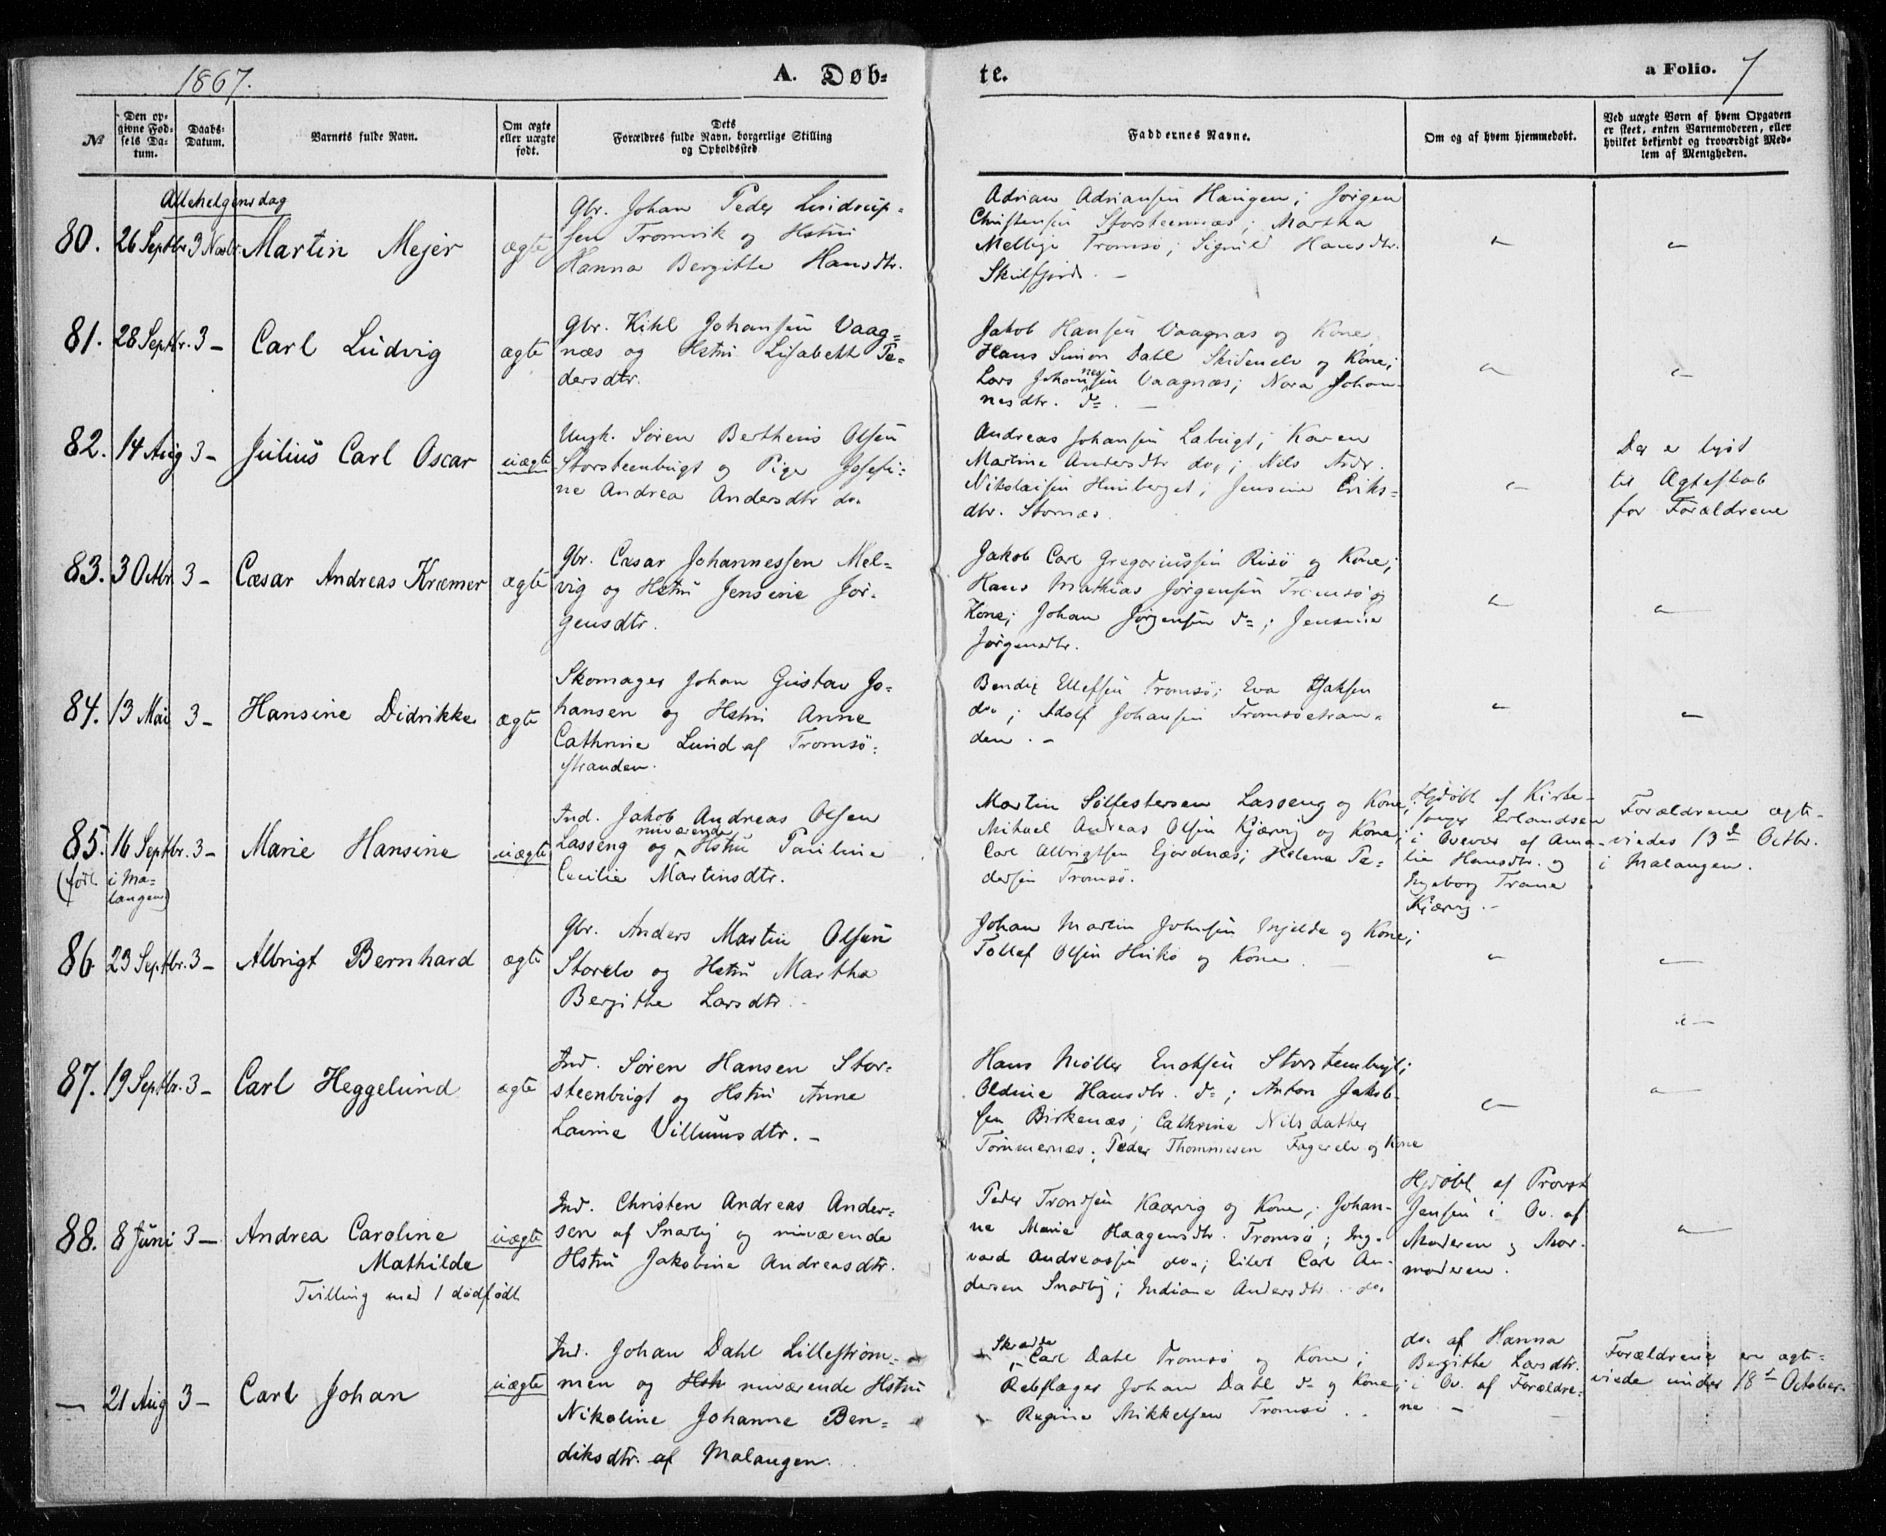 1867.
A. Døb-
te.
a Folio. 7
№
Den op-
givne Fød-
sels Da-
tum.
Daabs-
Datum.
Barnets fulde Navn.
Om ægte
eller uægte
født.
Dets
Forældres fulde Navn, borgerlige Stilling
og Opholdssted
Faddernes Navne.
Om og af hvem hjemmedøbt.
Ved uægte Børn af hvem Opgaven
er skeet, enten Barnemoderen, eller
hvilket bekjendt og troværdigt Med-
lem af Menigheden.
Allehelgensdag
80. 26 Septbr. 3 Novbr. Martin Mejer
ægte
Gbr. Johan Peder Lindrup-
sen Tromvik og Hstru
Hanna Bergitte Hansdtr.
Adrian Adriansen Haugen; Jørgen
Christensen Storsteennæs; Martha
Tromsø; Hansdtr.
81. 28 Septbr. 3 – Carl Ludvig
ægte
Gbr. Kihl Johansen Vaag-
næs og Hstru Lisabeth Pe-
dersdtr.
Jakob Hansen Vaagnæs og Kone,
Hans Simon Dahl Skidenelv og Kone;
Lars Johannessen Vaagnæs; Nora Johan-
nesdtr. do. –
82. 14 Aug 3 – Julius Carl Oscar
uægte
Ungk. Søren Bertheus Olsen
Storsteenbugt og Pige Josefi-
ne Andrea Andersdtr do.
Andreas Johansen Labugt; Karen
Martine Andersdtr do.; Nils Andr.
Nikolaisen; Jensine Eriks-
dtr. Stornæs.
Der er lyst
til Ægteskab
for Forældrene
83. 3 Octbr. 3 – Cæsar Andreas Kræmer
ægte
Gbr. Cæsar Johannessen Mel-
vig og Hstru Jensine Jør-
gensdtr.
Jakob Carl Gregoriussen Risø og Kone;
Hans Mathias Jørgensen Tromsø og
Kone; Johan Jørgensen do.; Jensine
Jørgensdtr.
84. 13 Mai 3 – Hansine Didrikke
ægte
Skomager Johan Gustav Jo-
hansen og Hstru Anne
Cathrine Lund af Tromsø-
stranden.
Bendix Ellefsen Tromsø; Eva Isaksen
do.; Adolf Johansen Tromsøstran-
den. –
85. 16 Septbr. 3 – Marie Hansine
(født i Ma-
langen)
uægte
Ind. Jakob Andreas Olsen
Lasseng og nuværende Hstru Pauline
Cecilie Martinsdtr.
Martin Sølfestersen Lasseng og Kone,
Mikael Andreas Olsen Kjærvig og Kone,
Carl Albrigtsen Gjordnæs; Helena Pe-
dersen Tromsø.
Hjdøbt af Kirke-
sanger Erlandsen
i Overvær af Ama-
lie Hansdtr. og
Ingeborg Trane
Kjærvig. –
Forældrene ægte-
viedes 13de Octbr.
i Malangen.
86. 23 Septbr. 3 – Albrigt Bernhard
ægte
Gbr. Anders Martin Olsen
Storelv og Hstru Martha
Bergithe Larsdtr.
Johan Martin Johnsen Mjelde og Kone;
Tollef Olsen og Kone
87. 19 Septbr. 3 – Carl Heggelund
ægte
Ind. Søren Hansen Stor-
steenbugt og Hstru Anne
Lavine Villumsdtr. –
Hans Møller Enoksen Storstenbugt;
Oldine Hansdtr. do; Anton Jakob-
sen Birkenæs; Cathrine Nilsdatter
Tømmernæs; Peder Thommesen Fagerelv og Kone
88. 8 Juni 3 – Andrea Caroline
Mathilde
Tvilling med 1 dødfødt
uægte
Ind. Christen Andreas Ander-
sen af Snarby og nuværende
Hstru Jakobine Andreasdtr.
Peder Trondsen Kaarvig og Kone; Johan-
ne Marie Haagensdtr. Tromsø; Ing-
vard Andreassen do.; Eilert Carl An-
dersen Snarby; Indiane Andersdtr. do.
Hjdøbt af Provst
Jensen i Ov. af
Moderen og Mor-
moderen.
– 21 Aug 3 – Carl Johan
uægte
Ind. Johan Dahl Lillestrøm-
men og nuværende Hstru
Nikoline Johanne Ben-
diksdtr. af Malangen.
Skrædder Carl Dahl Tromsø og Kone;
Rebslager Johan Dahl do og Kone;
Regine Mikkelsen Tromsø.
do. af Hanna
Bergitte Larsdtr.
i Ov. af Forældre-
ne –
Forældrene er ægte-
viede under 18de October.